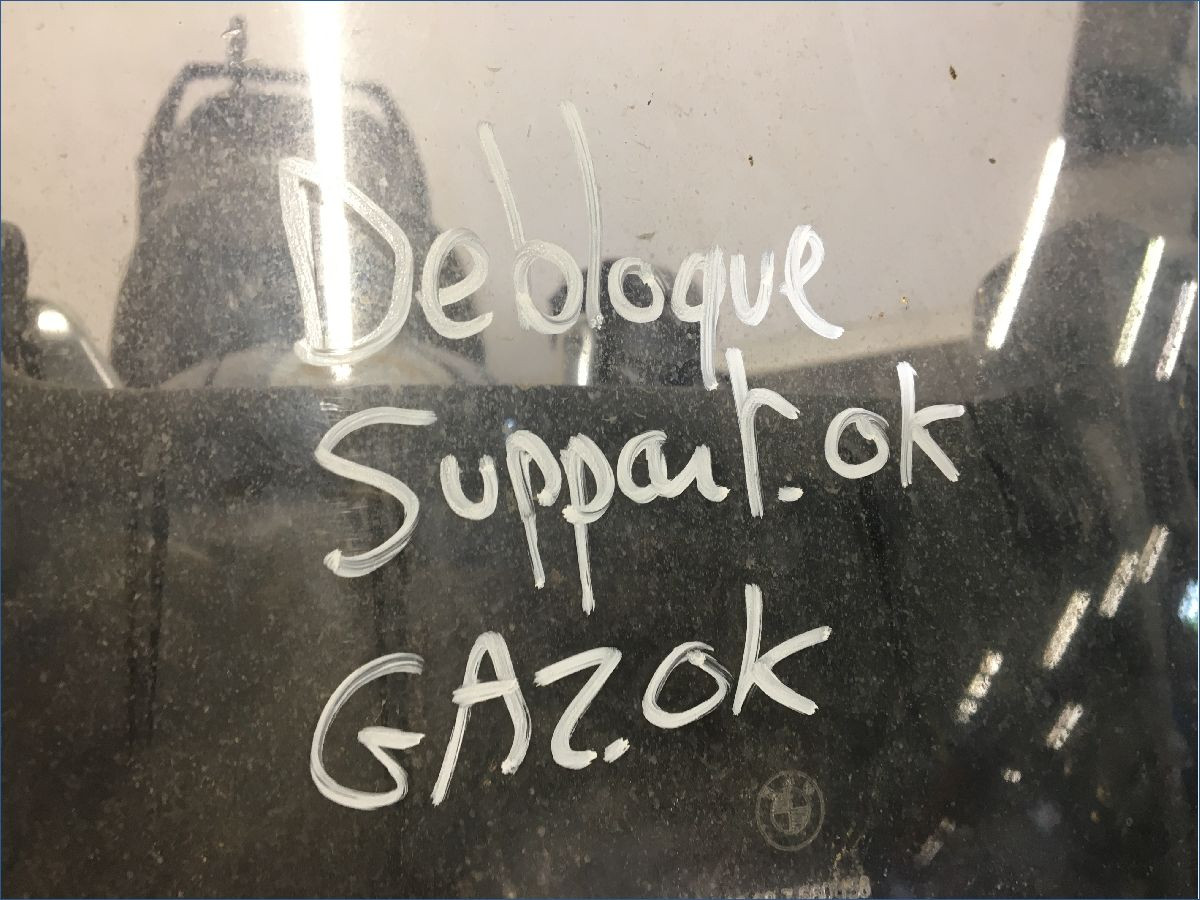 Debloque
Support.ok
GAZ.OK